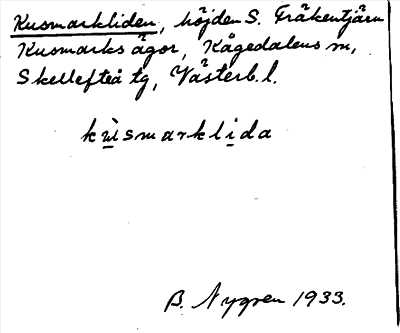 Kusmarkliden, höjden S. Fräkentjärn
Kusmarks ägor, Kågedalens m,
Skellefteå tg, Västerb. l.
kùsmarklida
B. Nygren 1933.